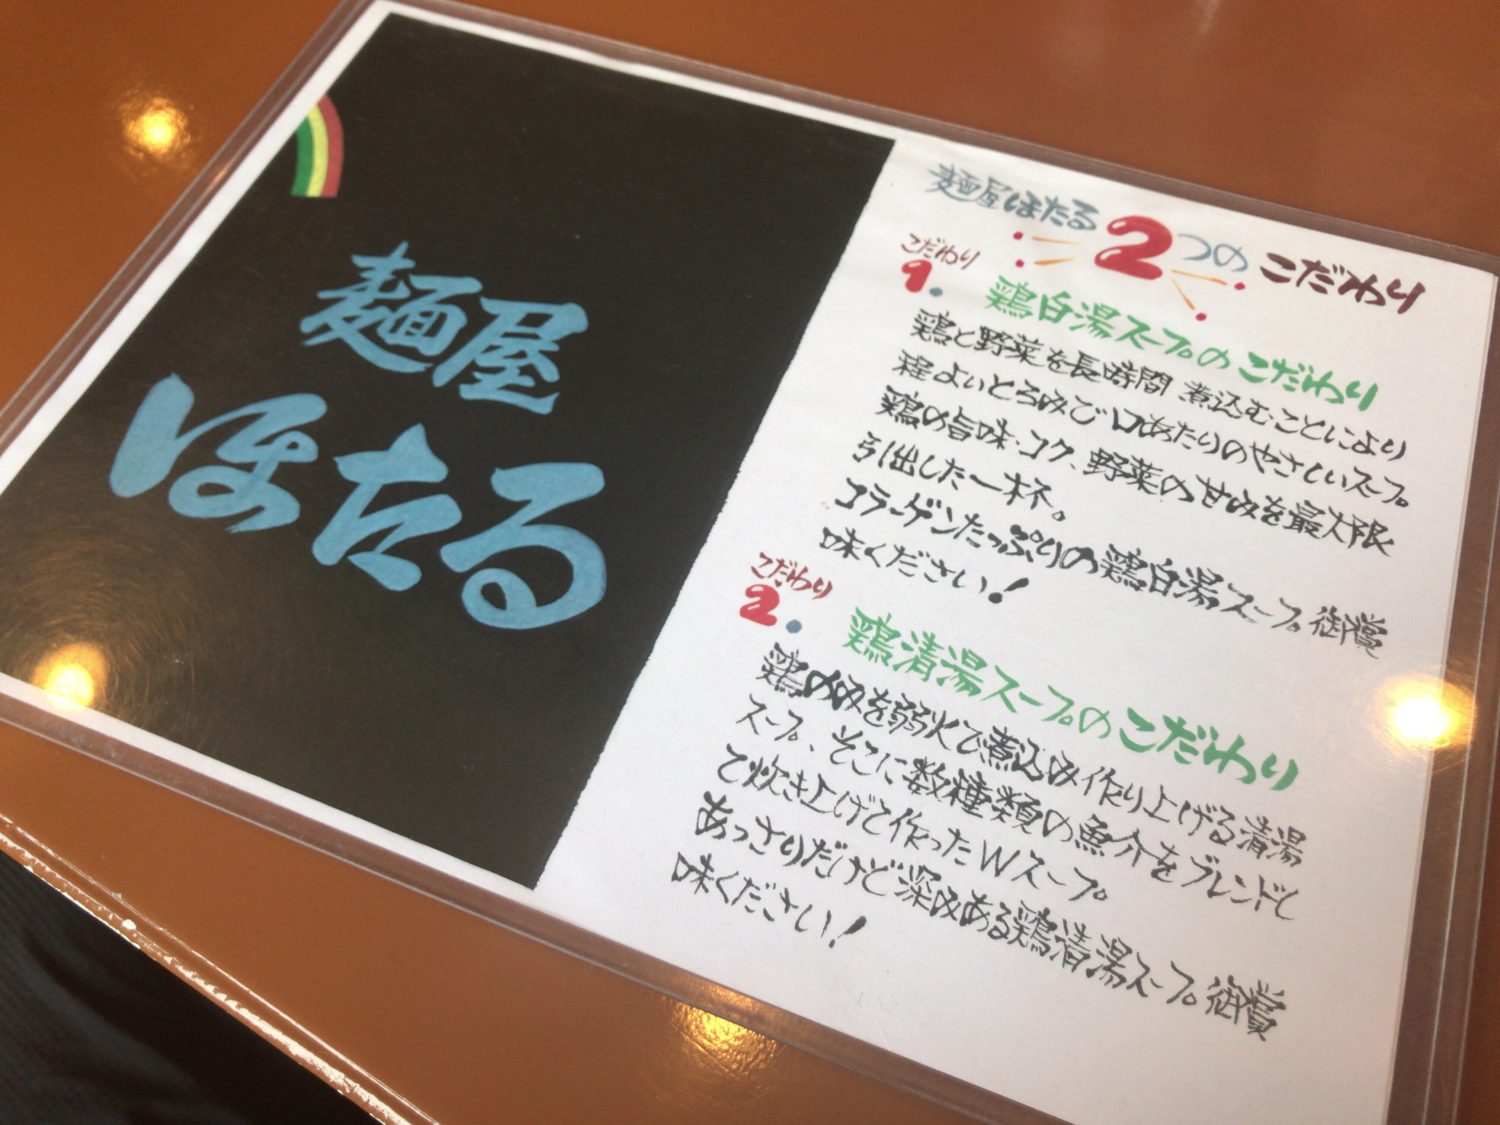 麺屋
ほたる
麺屋ほたる 2つの こだわり
こだわり
1. 鶏白湯スープのこだわり
鶏と野菜を長時間 煮込むことにより
程よいとろみで口あたりのやさしいスープ。
鶏の旨味・コク、野菜の甘みを最大限
引出した一杯。
コラーゲンたっぷりの鶏白湯スープ。御賞
味ください!
こだわり
2. 鶏清湯スープのこだわり
鶏のみを弱火で煮込み作り上げる清湯
スープ、そこに数種類の魚介をブレンドし
て炊き上げて作ったWスープ。
あっさりだけど深みある鶏清湯スープ。御賞
味ください!